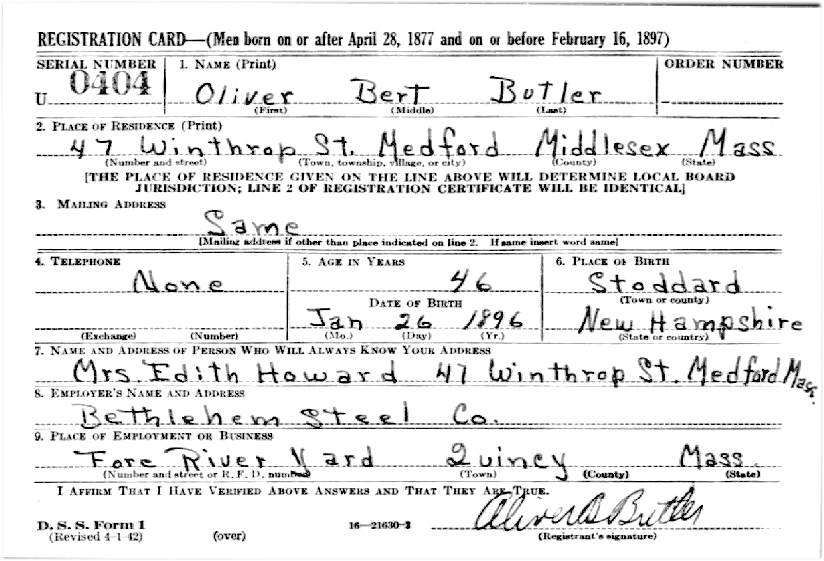 REGISTRATION CARD—(Men born on or after April 28, 1877 and on or before February 16, 1897)
SERIAL NUMBER 1. NAME (Print) ORDER NUMBER
U 0404 Oliver Bert Butler
(First) (Middle) (Last)
2. PLACE OF RESIDENCE (Print)
47 Winthrop St. Medford Middlesex Mass
(Number and street) (Town, township, village, or city) (County) (State)
[THE PLACE OF RESIDENCE GIVEN ON THE LINE ABOVE WILL DETERMINE LOCAL BOARD
JURISDICTION; LINE 2 OF REGISTRATION CERTIFICATE WILL BE IDENTICAL]
3. MAILING ADDRESS
Same
[Mailing address if other than place indicated on line 2. If same insert word same]
4. TELEPHONE 5. AGE IN YEARS 6. PLACE OF BIRTH
None 46 Stoddard
DATE OF BIRTH (Town or county)
Jan 26 1896 New Hampshire
(Exchange) (Number) (Mo.) (Day) (Yr.) (State or country)
7. NAME AND ADDRESS OF PERSON WHO WILL ALWAYS KNOW YOUR ADDRESS
Mrs. Edith Howard 47 Winthrop St. Medford Mass.
8. EMPLOYER'S NAME AND ADDRESS
Bethlehem Steel Co.
9. PLACE OF EMPLOYMENT OR BUSINESS
Fore River Yard Quincy Mass.
(Number and street or R. F. D. number) (Town) (County) (State)
I AFFIRM THAT I HAVE VERIFIED ABOVE ANSWERS AND THAT THEY ARE TRUE.
Oliver B Butler
D. S. S. Form 1 16—21630-2
(Revised 4-1-42) (over) (Registrant's signature)